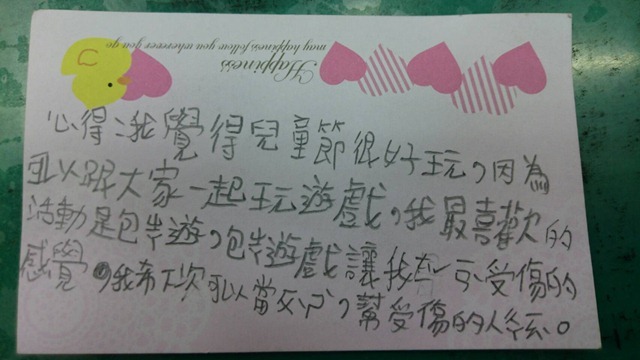 Happiness
may happiness follow you wherever you go
心得:我覺得兒童節很好玩,因為
可以跟大家一起玩遊戲,我最喜歡的
活動是包遊,包遊戲讓我受傷的
感覺。我希下次可以當,幫受傷的人。